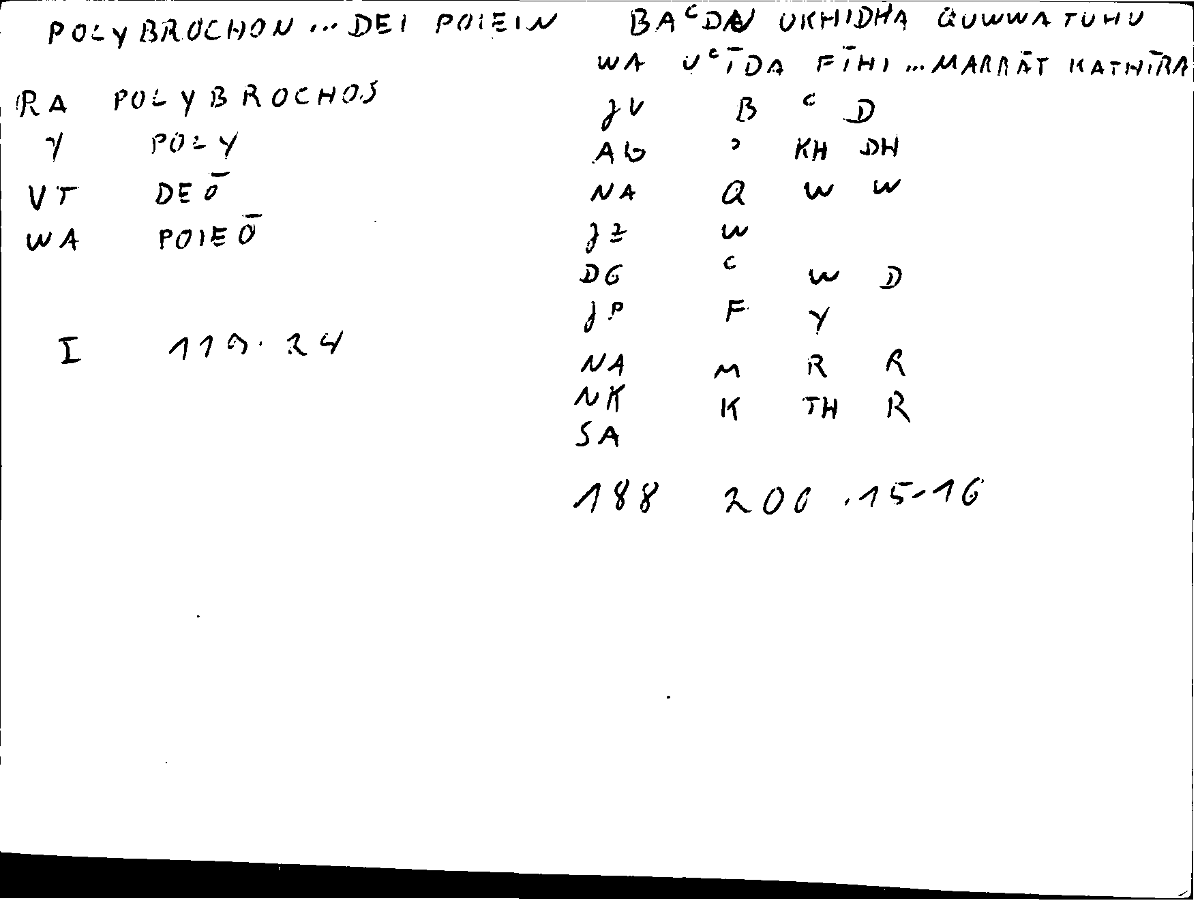 POLYBROCHON ... DEI POIEIN
RA POLYBROCHOS
Y POLY
VT DEŌ
WA POIEŌ
I 119.24
BAᶜDA UKHIDHA QUWWATUHU
WA UᶜĪDA FĪHI ... MARRĀT KATHĪRA
JV B ᶜ D
AG ʾ KH DH
NA Q W W
JZ W
DG ᶜ W D
JP F Y
NA M R R
NK K TH R
SA
188 200.15-16